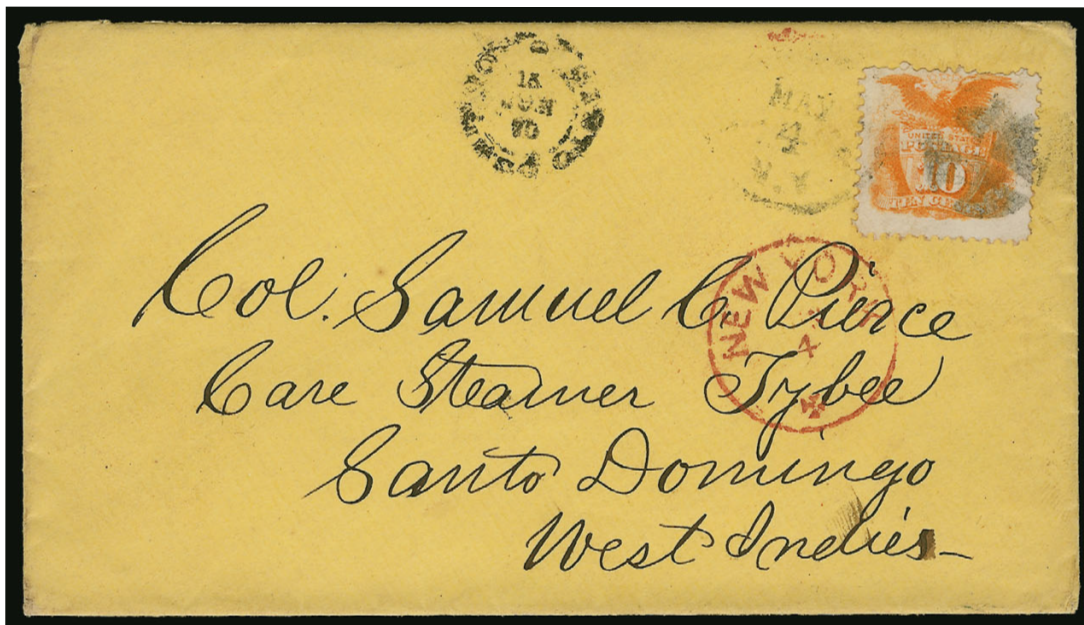 15
JUN
70
MAY
N.Y.
UNITED STATES
POSTAGE
10
TEN CENTS
NEW YORK
Col. Samuel C. Pierce
Care Steamer Tybee
Santo Domingo
West Indies